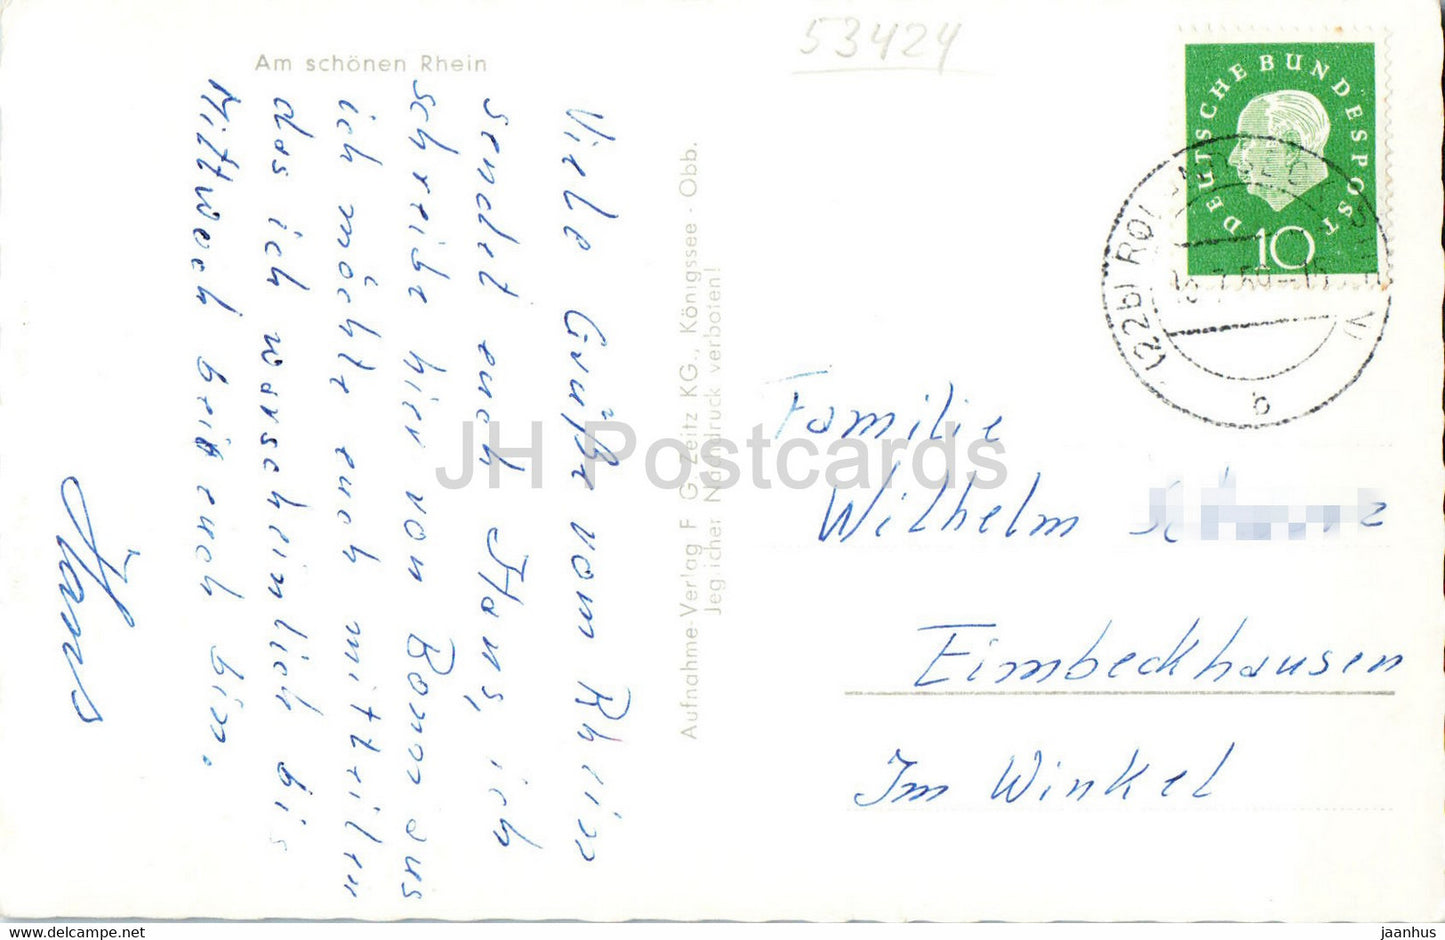 Am schönen Rhein
53424
Viele Grüße vom Rhein
sendet euch Hans, ich
schreibe hier von Bonn aus
ich möchte euch mitteilen
das ich warscheinlich bis
Mittwoch bei euch bin.
Hans
Aufnahme-Verlag F. G. Zeitz KG., Königssee - Obb.
Jeglicher Nachdruck verboten!
DEUTSCHE BUNDESPOST
10
(22b)
b
Familie
Wilhelm
Eimbeckhausen
Im Winkel
JH Postcards
jaanhus